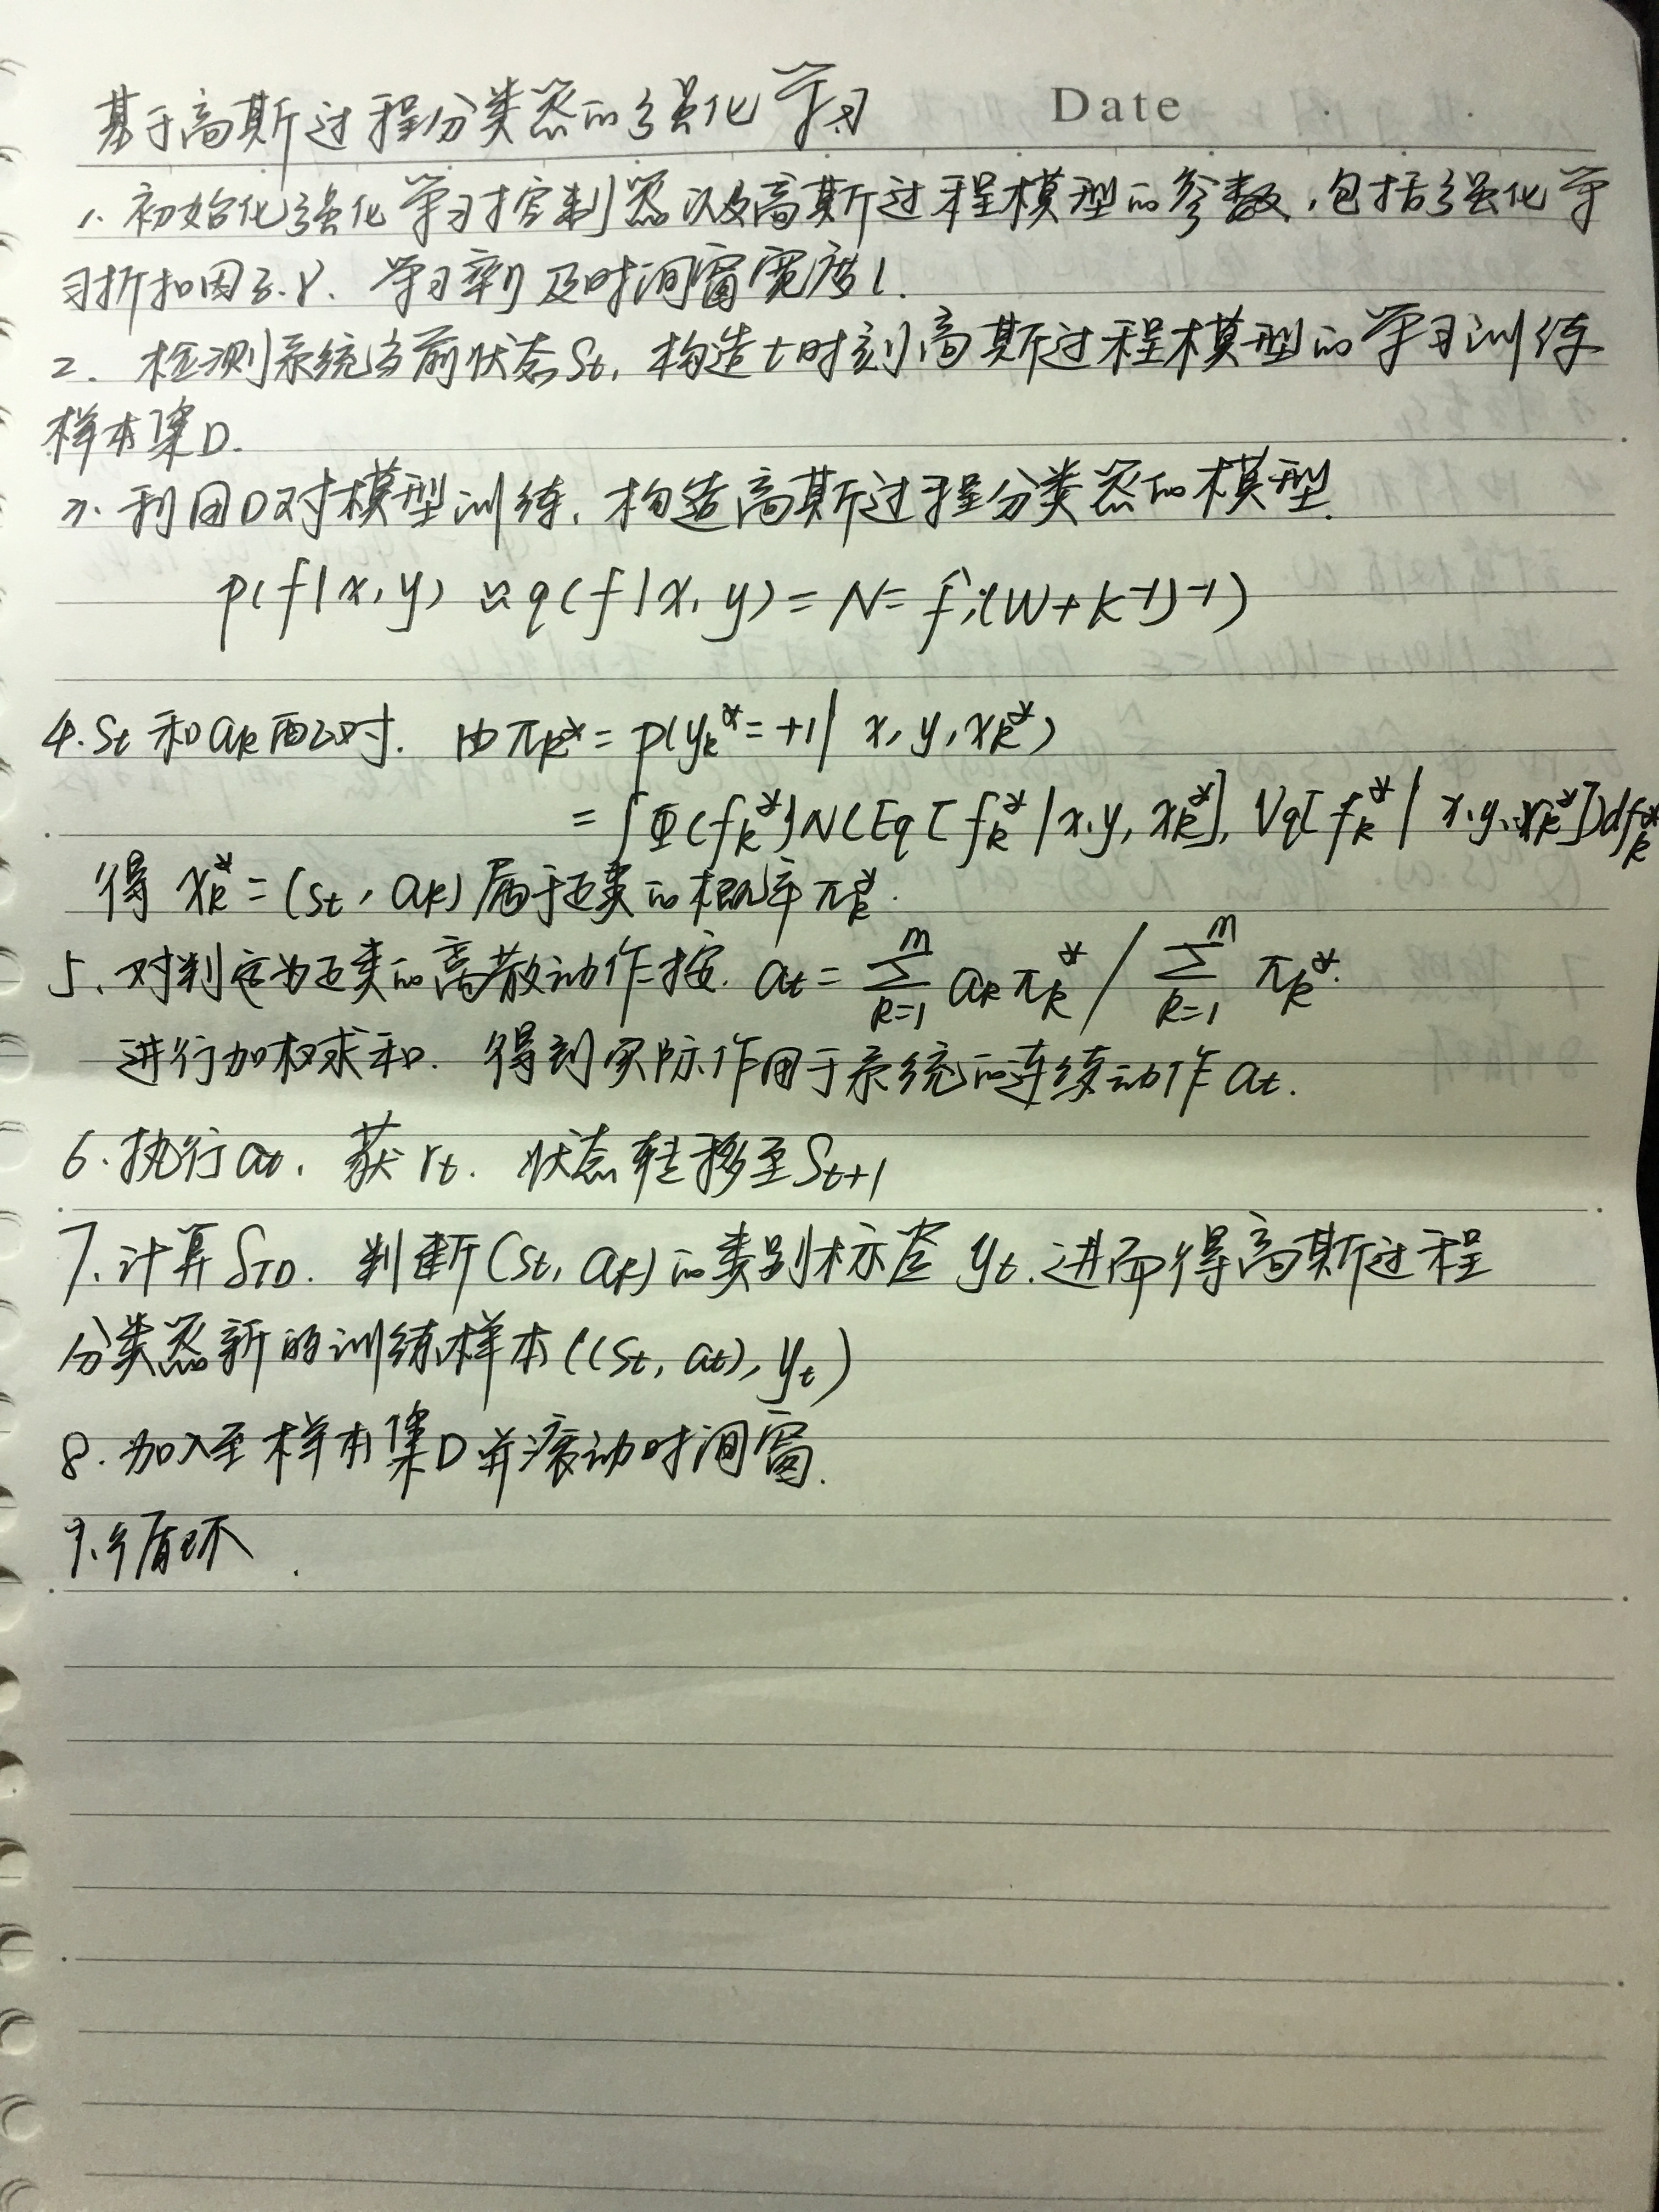 Date
基于高斯过程分类器的强化学习
1. 初始化强化学习控制器以及高斯过程模型的参数,包括强化学
习折扣因子γ、学习率η及时间窗宽度l.
2. 检测系统当前状态St, 构造t时刻高斯过程模型的学习训练
样本集D.
3. 利用D对模型训练, 构造高斯过程分类器的模型.
p(f|x,y) ≈ q(f|x,y) = N = f̂,(W+K⁻¹)⁻¹)
4. St 和 ak 配对. 由 πk* = p(yk* = +1 | x, y, xk*)
= ∫Φ(fk*)N(Eq[fk*|x,y,xk*], Vq[fk*|x,y,xk*])dfk*
得 xk* = (st, ak) 属于正类的概率πk*.
5. 对判定为正类的离散动作按. at = Σ(k=1→m) ak πk* / Σ(k=1→m) πk*.
进行加权求和. 得到实际作用于系统的连续动作 at.
6. 执行at, 获rt. 状态转移至St+1
7. 计算δTD. 判断(St, ak)的类别标签 yt. 进而得高斯过程
分类器新的训练样本((St, at), yt)
8. 加入至样本集D并滚动时间窗.
9. 循环.